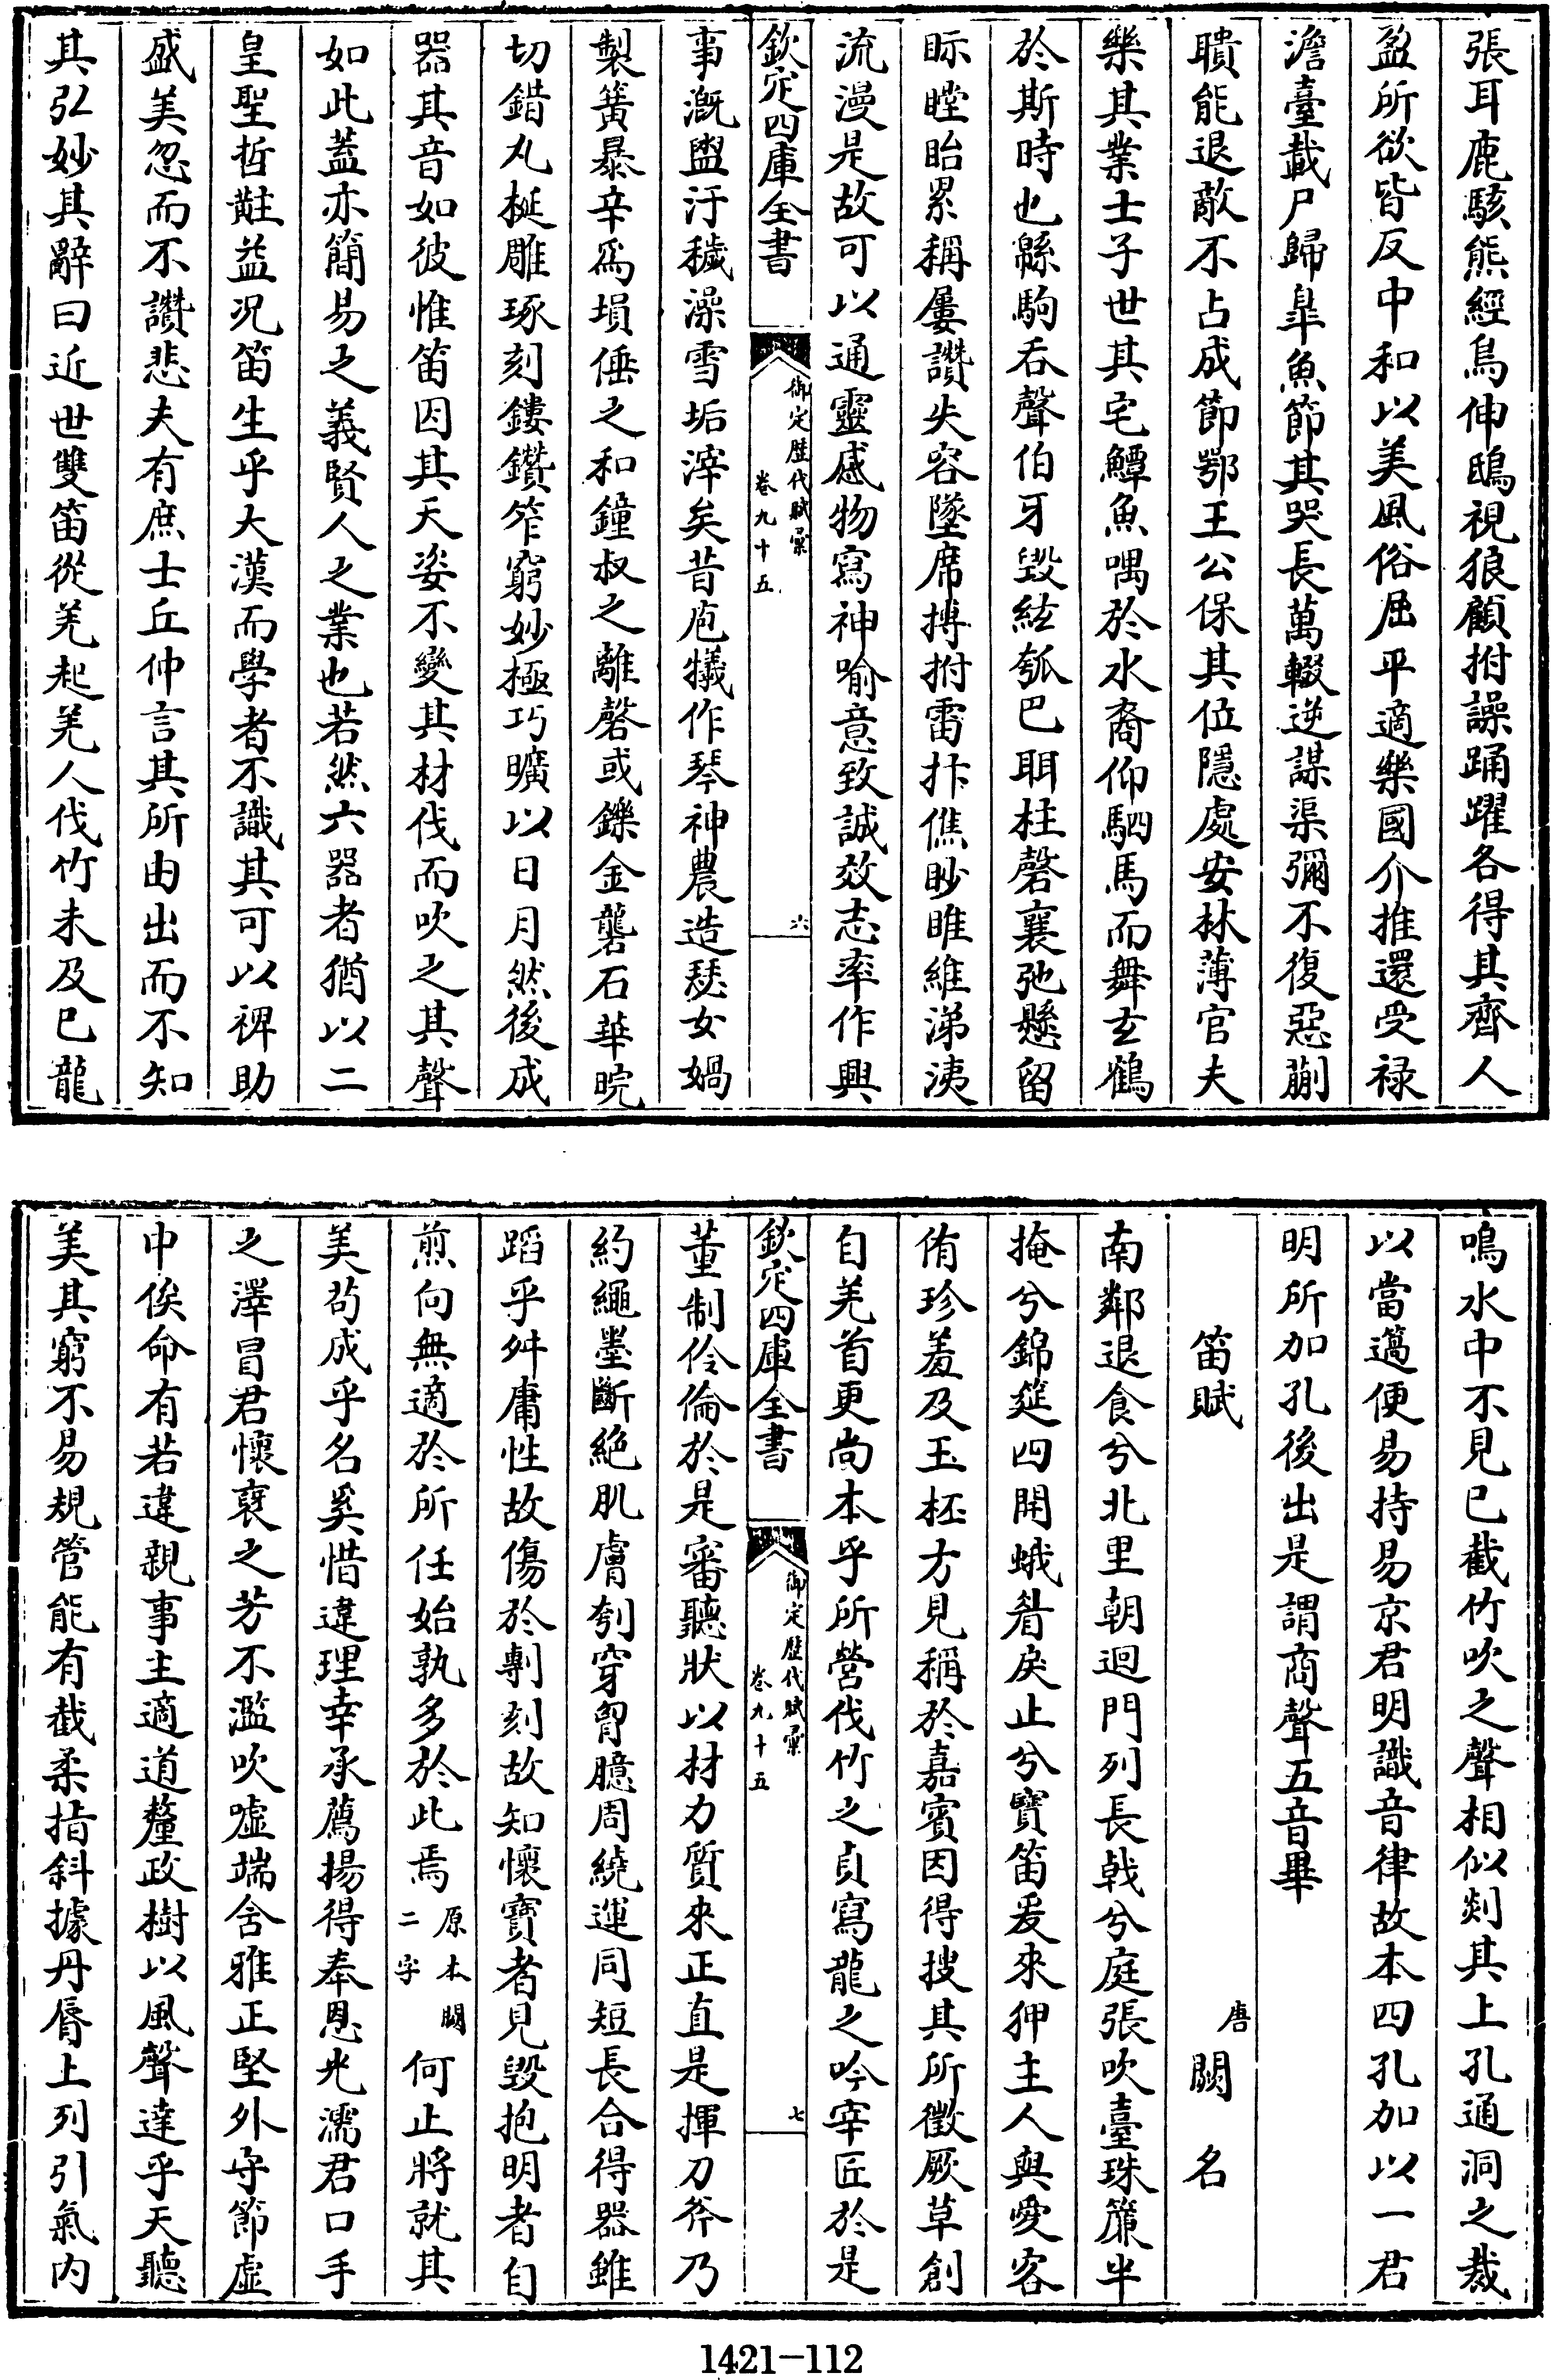 張耳鹿駭熊經鳥伸鴟視狼顧拊譟踊躍各得其齊人
盈所欲皆反中和以美風俗屈平適樂國介推還受禄
澹臺載尸歸皐魚節其哭長萬輟逆謀渠彌不復惡蒯
聵能退敵不占成節鄂王公保其位隱處安林薄官夫
樂其業士子世其宅鱏魚喁於水裔仰駟馬而舞玄鶴
於斯時也緜駒吞聲伯牙毁絃瓠巴聑柱磬襄弛懸留
眎瞠眙累稱屢讚失容墜席搏拊雷抃僬眇睢維涕洟
流漫是故可以通靈感物寫神喻意致誠效志率作興
欽定四庫全書
御定歷代賦彙
卷九十五
六
事溉盥汙穢澡雪垢滓矣昔庖犧作琴神農造瑟女媧
製簧暴辛為塤倕之和鐘叔之離磬或鑠金礱石華睆
切錯丸梴雕琢刻鏤鑽笮窮妙極巧曠以日月然後成
器其音如彼惟笛因其天姿不變其材伐而吹之其聲
如此蓋亦簡易之義賢人之業也若然六器者猶以二
皇聖哲黈益況笛生乎大漢而學者不識其可以裨助
盛美忽而不讚悲夫有庶士丘仲言其所由出而不知
其弘妙其辭曰近世雙笛從羌起羌人伐竹未及已龍
鳴水中不見已截竹吹之聲相似剡其上孔通洞之裁
以當薖便易持易京君明識音律故本四孔加以一君
明所加孔後出是謂商聲五音畢
笛賦
唐闕名
南鄰退食兮北里朝迴門列長戟兮庭張吹臺珠簾半
掩兮錦筵四開蛾眉戾止兮寶笛爰來狎主人與愛客
侑珍羞及玉柸方見稱於嘉賓因得搜其所徵厥草創
自羌首更尚本乎所營伐竹之貞寫龍之吟宰匠於是
欽定四庫全書
御定歷代賦彙
卷九十五
七
董制伶倫於是審聽狀以材力質來正直是揮刀斧乃
約繩墨斷絶肌膚刳穿胷臆周繞運同短長合得器雖
蹈乎舛庸性故傷於剸刻故知懷寶者見毁抱明者自
煎向無適於所任始孰多於此焉原本闕二字何止將就其
美茍成乎名奚惜違理幸承薦揚得奉恩光濡君口手
之澤冒君懷裒之芳不濫吹嘘端含雅正堅外守節虛
中俟命有若違親事主適道釐政樹以風聲達乎天聽
美其窮不易規管能有截柔指斜據丹脣上列引氣内
1421-112